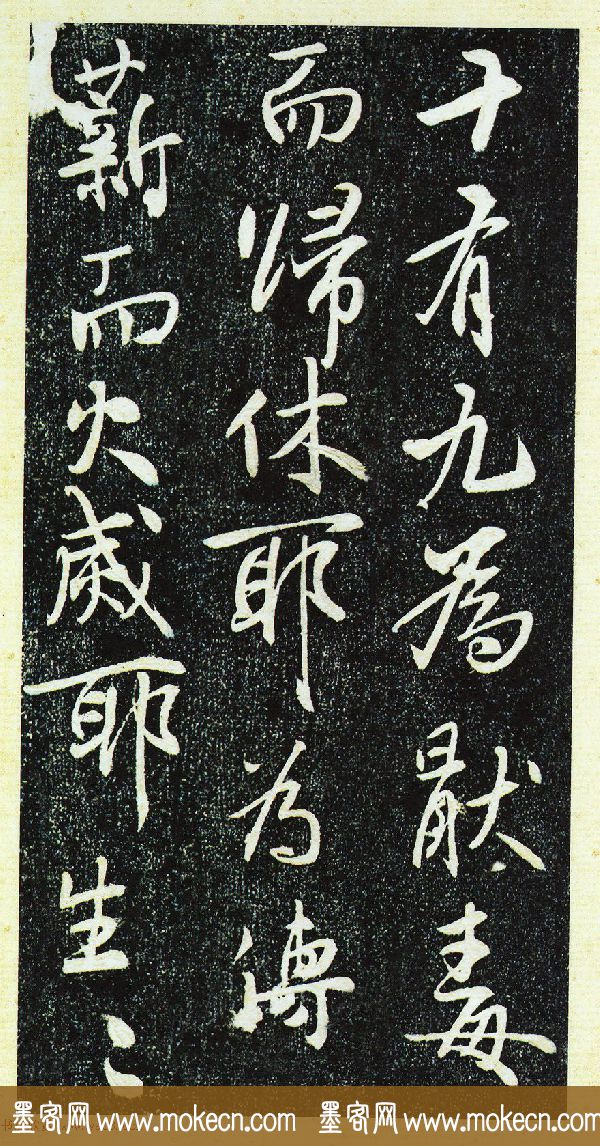 十有九為猒毒
而歸休耶为傳
薪而火烕耶生〻
墨客网 www.mokecn.com 墨客网 www.mokecn.com